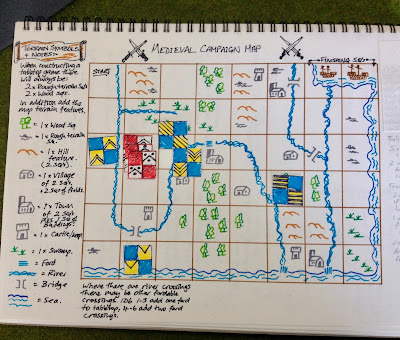 MEDIEVAL CAMPAIGN MAP
TERRAIN SYMBOLS
+ NOTES
When constructing a
tabletop game there
will always be:
2 x Rough terrain sqs
2 x Wood sqs.
In addition add the
map terrain features.
= 1 x Wood Sq
= 1 x Rough terrain
Sq.
= 1 x Hill
feature.
(2 sqs)
= 1 x Village
of 2 sqs
+ 2 sqs of fields.
= 1 x Town
of 2 sqs
plus 1 sq of
Buildings
= 1 x Castle/keep
= 1 x Swamp.
= Ford
= River
= Bridge
= Sea.
START
FINISHING SQ.
Where there are river crossings
there may be other fordable
crossings. 1D6 1-3 add one ford
to tabletop, 4-6 add two ford
crossings.